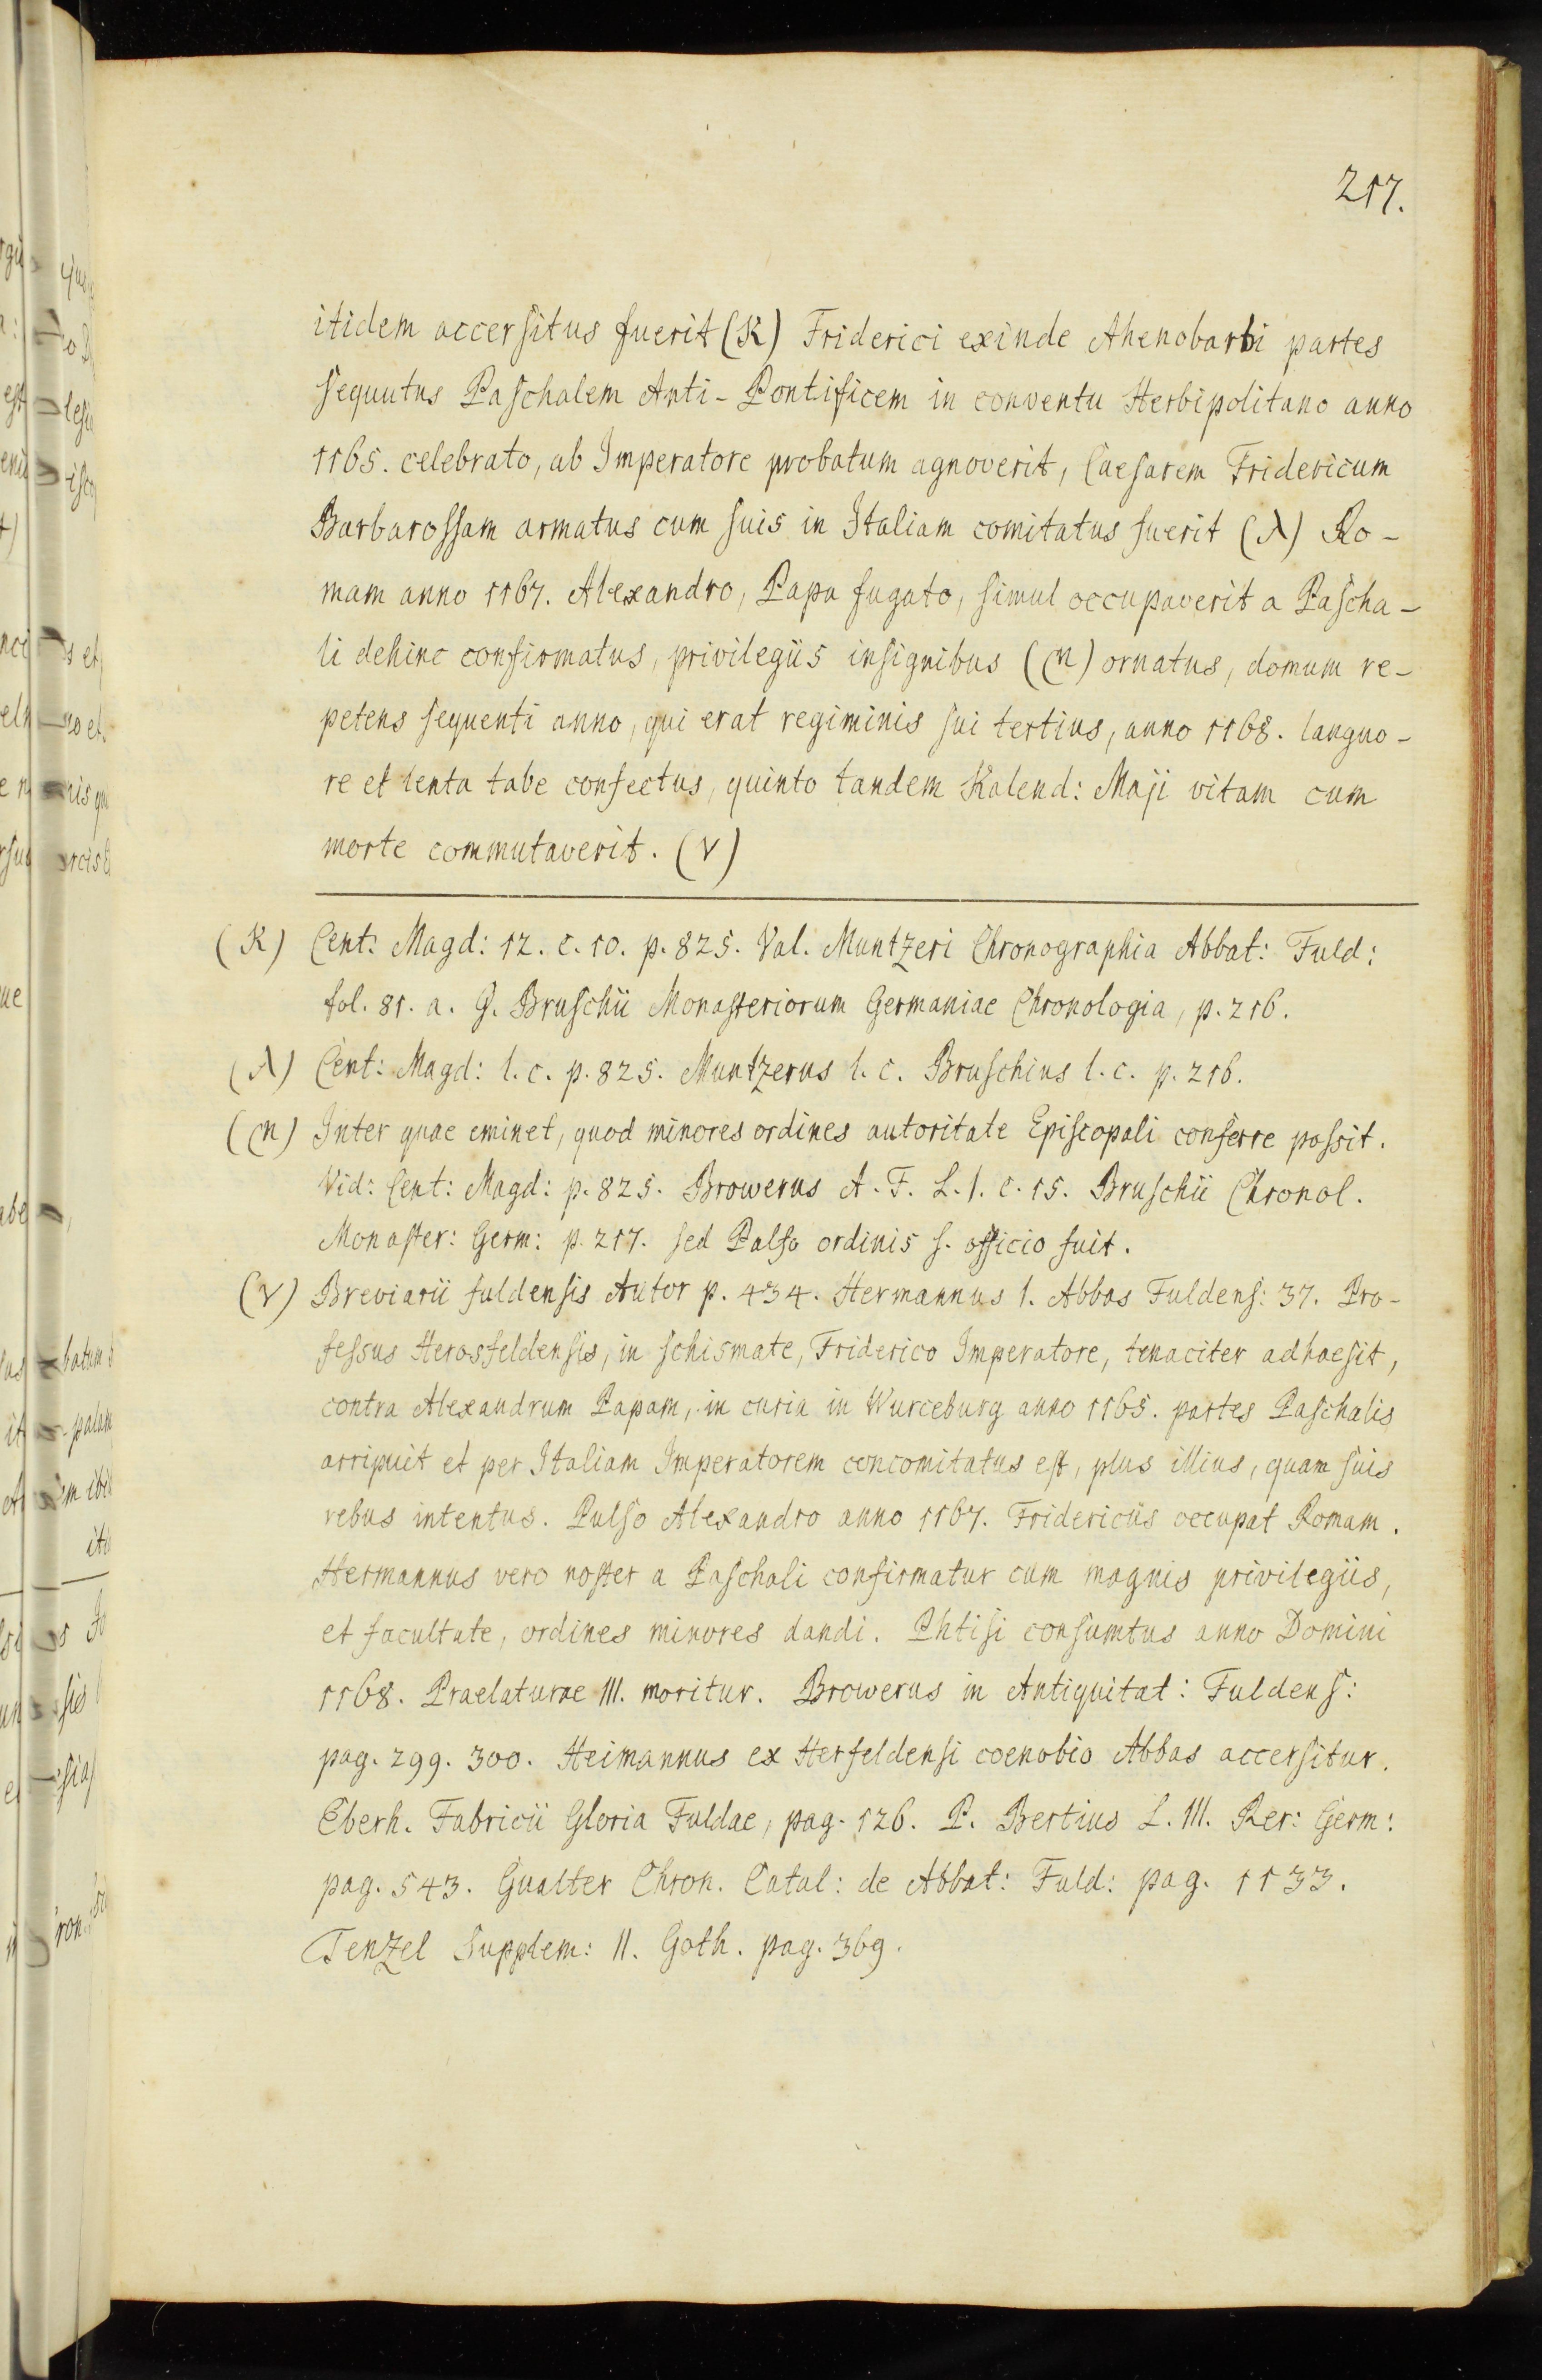 217.
itidem accersitus fuerit (K) Friderici exinde Ahenobarbi partes
sequutus Paschalem Anti-Pontificem in conventu Herbipolitano anno
1165. celebrato, ab Imperatore probatum agnoverit, Caesarem Fridericum
Barbarossam armatus cum suis in Italiam comitatus fuerit (λ) Ro-
mam anno 1167. Alexandro, Papa fugato, simul occupaverit a Pascha-
li dehinc confirmatus, privilegiis insignibus (m) ornatus, domum re-
petens sequenti anno, qui erat regiminis sui tertius, anno 1168. languo-
re et lenta tabe confectus, quinto tandem Kalend: Maji vitam cum
morte commutaverit. (ν)
(K) Cent: Magd: 12. c. 10. p. 825. Val. Muntzeri Chronographia Abbat: Fuld:
fol. 81. a. G. Bruschii Monasteriorum Germaniae Chronologia, p. 216.
(λ) Cent: Magd: l. c. p. 825. Muntzerus l. c. Bruschius l. c. p. 216.
(m) Inter quae eminet, quod minores ordines autoritate Episcopali conferre possit.
Vid: Cent: Magd: p. 825. Browerus A. F. L. I. c. 15. Bruschii Chronol.
Monaster: Germ: p. 217. sed Palso ordinis s. officio fuit.
(ν) Breviarii fuldensis Autor p. 434. Hermannus I. Abbas Fuldens: 37. Pro-
fessus Herosfeldensis, in schismate, Friderico Imperatore, tenaciter adhaesit,
contra Alexandrum Papam, in curia in Wurceburg anno 1165. partes Paschalis
arripuit et per Italiam Imperatorem concomitatus est, plus illius, quam suis
rebus intentus. Pulso Alexandro anno 1167. Fridericus occupat Romam.
Hermannus vero noster a Paschali confirmatur cum magnis privilegiis,
et facultate, ordines minores dandi. Phtisi consumtus anno Domini
1168. Praelaturae III. moritur. Browerus in Antiquitat: Fuldens:
pag. 299. 300. Heimannus ex Herfeldensi coenobio Abbas accersitur.
Eberh. Fabricii Gloria Fuldae, pag. 126. P. Bertius L. III. Rer: Germ:
pag. 543. Gualter Chron. Catal: de Abbat: Fuld: pag. 1133.
Tenzel Supplem: II. Goth. pag. 369.